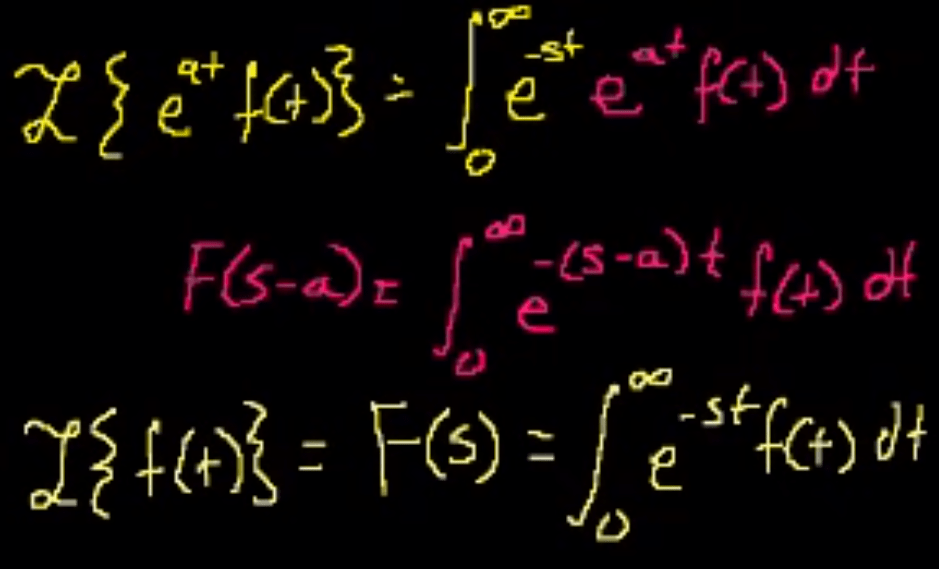 ℒ{e^{at} f(t)} = ∫_0^∞ e^{-st} e^{at} f(t) dt
F(s-a) = ∫_0^∞ e^{-(s-a)t} f(t) dt
ℒ{f(t)} = F(s) = ∫_0^∞ e^{-st} f(t) dt